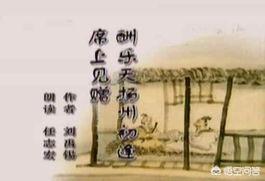 酬乐天扬州初逢
席上见赠
作者 刘禹锡
朗读 任志宏
悟空问答